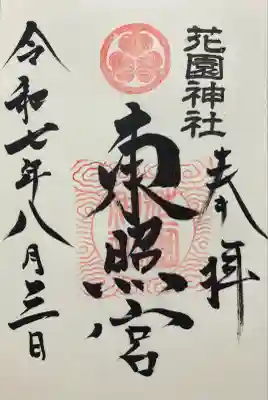 花園神社
奉拝
東照宮
令和七年八月三日